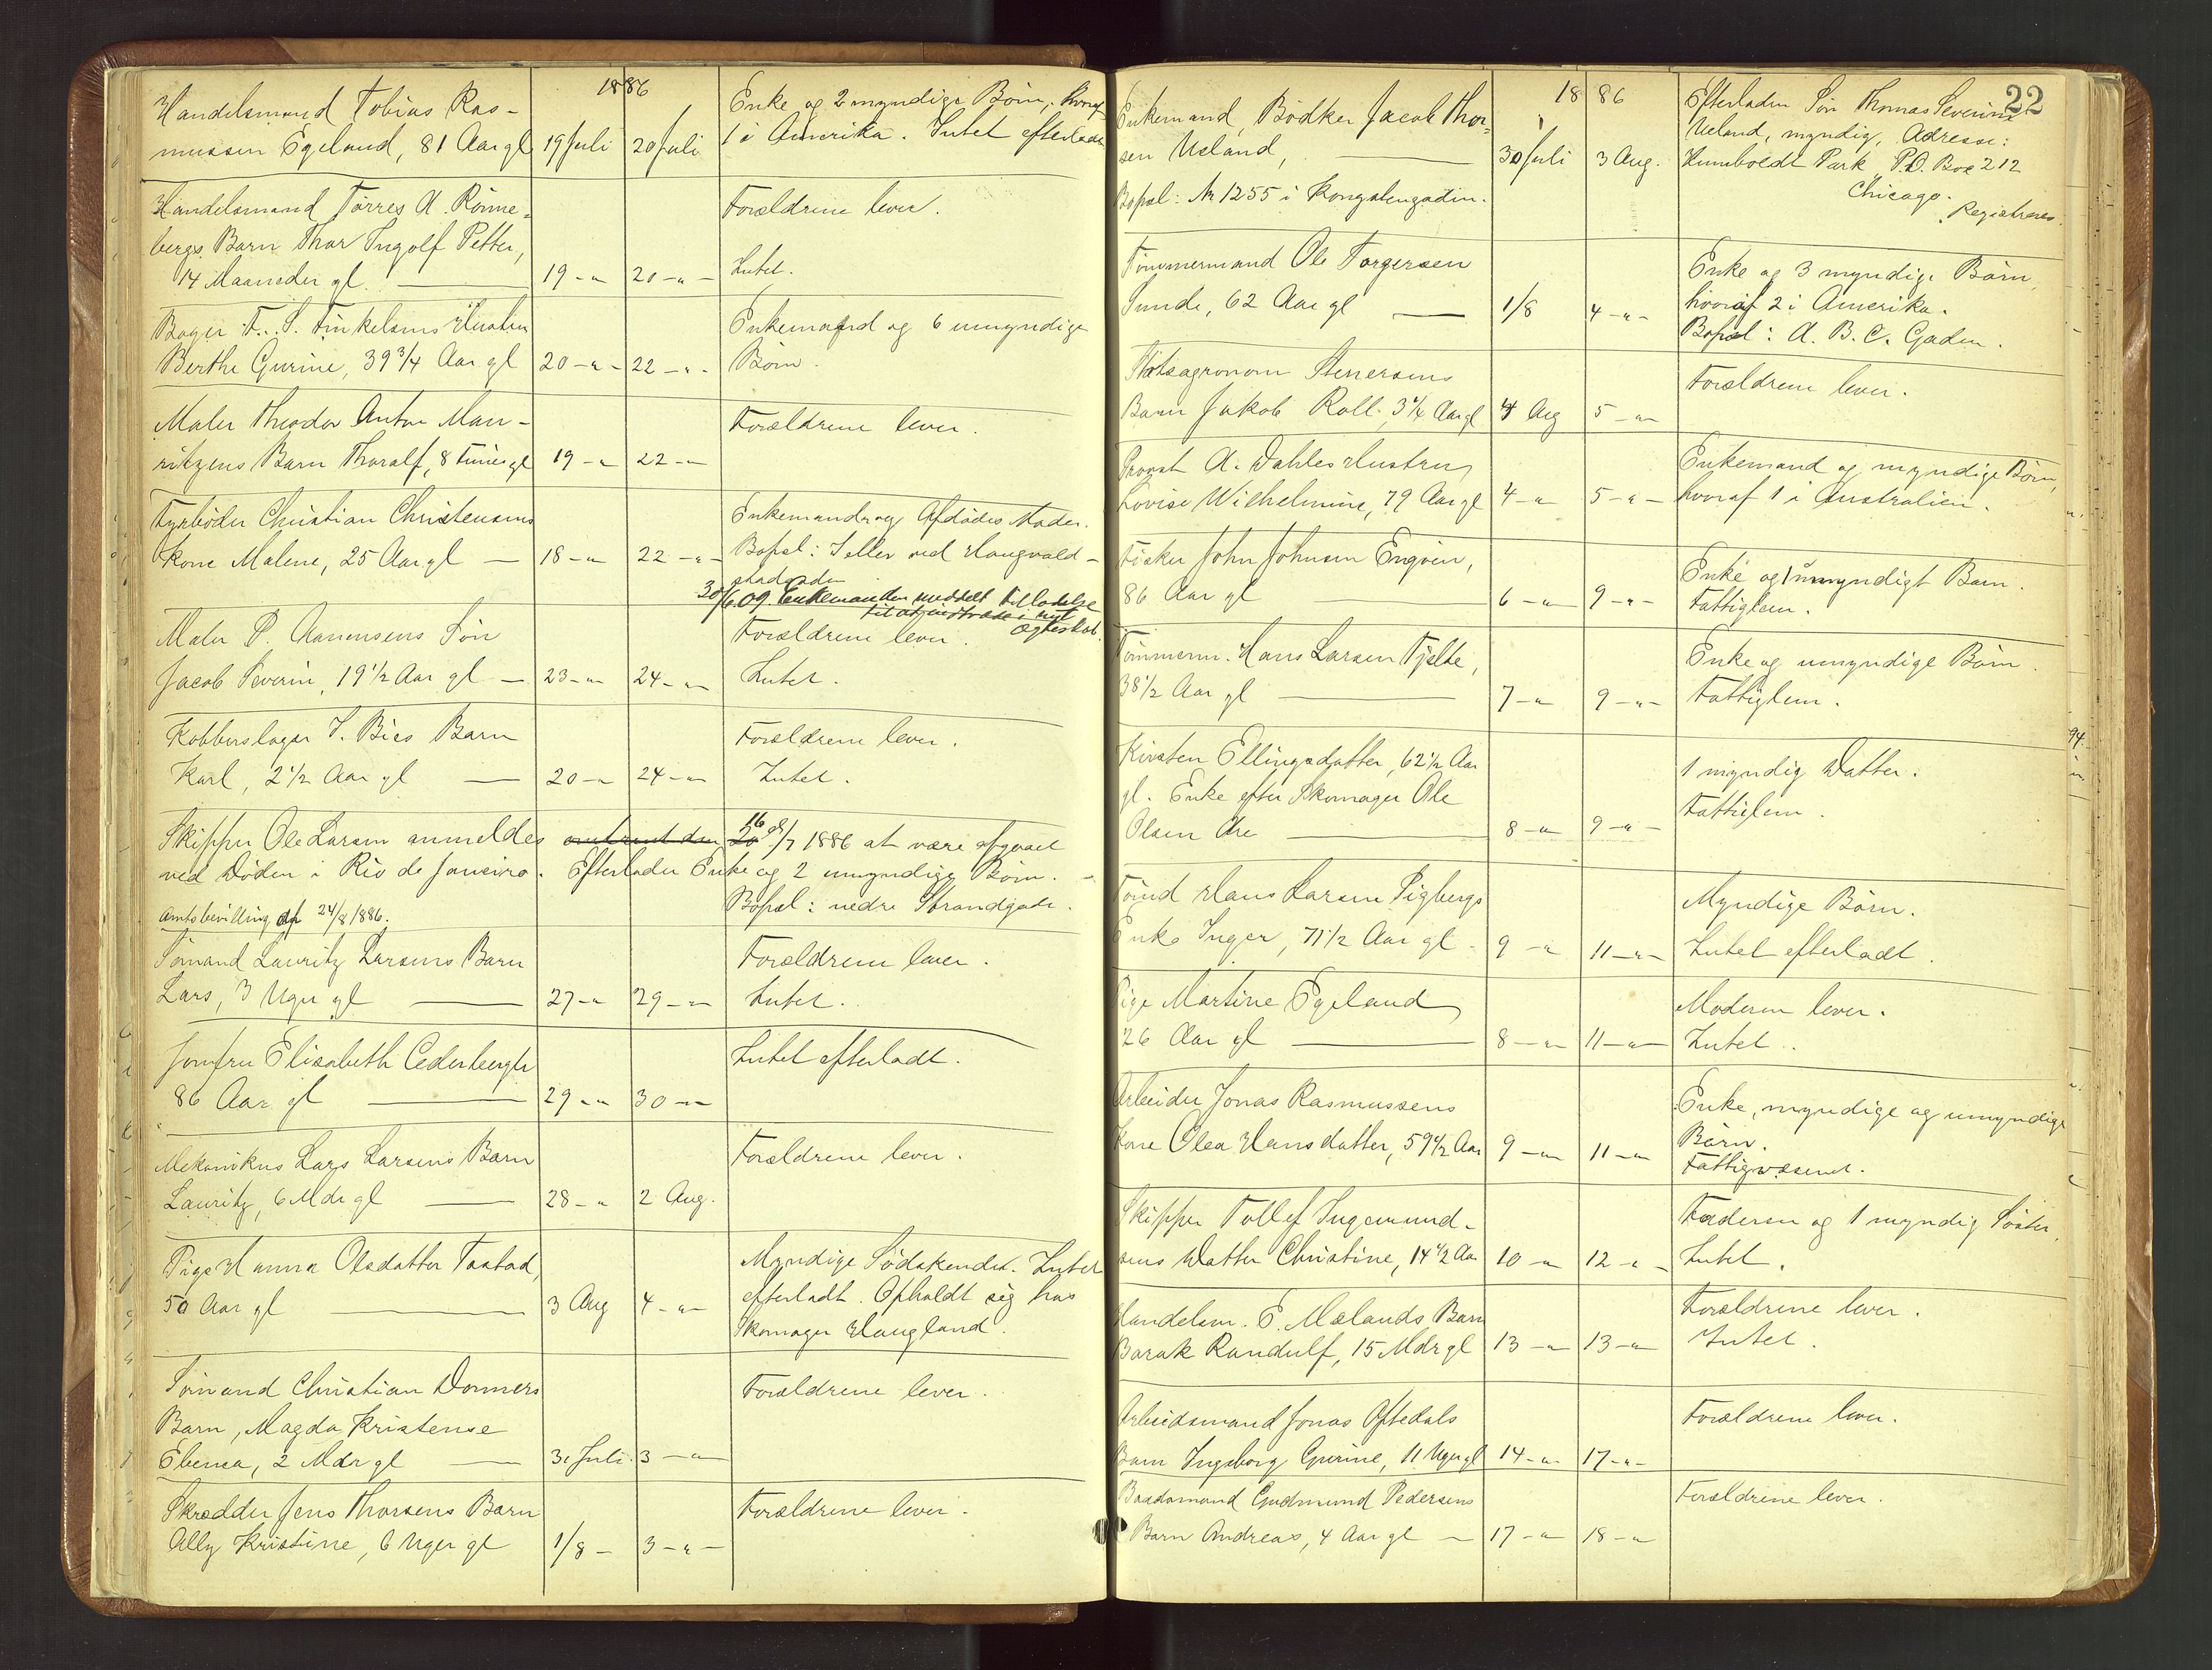 1886
Handelsmand Tobias Ras-
mussen Egeland, 81 Aar gl 19 Juli 20 Juli
Enke og 2 myndige Børn, hvoraf
1 i Amerika. Intet efterladt
Handelsmand Tørres A. Rønne-
bergs Barn Thor Ingolf Petter,
14 Maaneder gl. 19 - " 20 - " -
Forældrene lever.
Intet.
Bager F. S. Finkelsens Hustru
Berthe Gurine, 39 3/4 Aar gl 20 - " - 22 - " -
Enkemand og 6 umyndige
Børn.
Maler Theodor Anton Mau-
ritzens Barn Thoralf, 8 Timer gl 19 - " 22 - "
Forældrene lever.
Fyrbøder Christian Christensens
Kone Malene, 25 Aar gl - 18 - " 22 - " -
Enkemand og Afdødes Moder.
Bopæl: I eller ved Haugvald-
stadgaden
30/6 09 Enkemanden meddelt Tilladelse
til at indtræde i nyt
Ægteskab.
Maler P. Aanensens Søn
Jacob Severin, 19 1/2 Aar gl - 23 - " 24 - "
Forældrene lever.
Intet.
Kobberslager I. Bies Barn
Karl, 2 1/2 Aar gl - 20 - " 24 - "
Forældrene lever.
Intet.
Skipper Ole Larsen anmeldes omtrent den 20 16 de/7 1886 at være afgaaet
ved Døden i Rio de Janeiro. Efterlader Enke og 2 umyndige Børn.
Bopæl: nedre Strandgade.
Amtsbevilling af 24/8 1886.
Sømand Lauritz Larsens Barn
Lars, 3 Uger gl 27 - " 29 - "
Forældrene lever.
Intet.
Jomfru Elisabeth Cederbergh
86 Aar gl 29 - " 30 - "
Intet efterladt.
Mekanikus Lars Larsens Barn
Lauritz, 6 Mdr gl 28 - " 2 Aug.
Forældrene lever.
Pige Hanna Olsdatter Tastad,
50 Aar gl 3 Aug 4 - "
Myndige Sødskender. Intet
efterladt. Opholdt sig hos
Skomager Haugland.
Sømand Christian Donners
Barn, Magda Kristense
Ebensa, 2 Mdr gl 31 Juli 3 - "
Forældrene lever.
Skrædder Jens Thorsens Barn
Ally Kristine, 6 Uger gl 1/8 - 3 - " -
Forældrene lever.
22
1886
Enkemand, Bødker Jacob Thor-
sen Ueland, 30 Juli 3 Aug.
Bopæl: Nr 1255 i Kongstengaden.
Efterlader Søn Thomas Severin
Ueland, myndig, Adresse:
Humboldt Park P.O. Box 212
Chicago.
Registreres.
Tømmermand Ole Torgersen
Sunde, 62 Aar gl 1/8 4 - " -
Enke og 3 myndige Børn,
hvoraf 2 i Amerika.
Bopæl: A. B. C. Gaden.
Statsagronom Stenersens
Barn Jakob Roll, 3 1/4 Aar gl 4 Aug 5 - "
Forældrene lever.
Provst A. Dahles Hustru
Lovise Wilhelmine, 79 Aar gl 4 - " 5 - " -
Enkemand og myndige Børn,
hvoraf 1 i Australien.
Fisker John Johnsen Engøen,
86 Aar gl 6 - " 9 - " -
Enke og 1 umyndigt Barn.
Fattiglem.
Tømmerm. Hans Larsen Fjelde,
38 1/2 Aar gl 7 - " 9 - " -
Enke og umyndige Børn.
Fattiglem.
Kirsten Ellingsdatter, 62 1/2 Aar
gl. Enke efter Skomager Ole
Olsen Are 8 - " 9 - " -
1 myndig Datter.
Fattiglem.
Tømd Hans Larsen Sigbergs
Enke Inger, 71 1/2 Aar gl - 9 - " 11 - " -
Myndige Børn.
Intet efterladt.
Pige Martine Egeland
26 Aar gl 8 - " 11 - "
Moderen lever.
Intet.
Arbeider Jonas Rasmussens
Kone Olea Hansdatter, 59 1/2 Aar 9 - " 11 - "
Enke, myndige og umyndige
Børn.
Fattigvæsenet.
Skipper Tollef Ingemund-
sens Datter Christine, 14 1/2 Aar 10 - " 12 - " -
Faderen og 1 myndig Søster,
Intet.
Handelsm. E. Mælands Barn
Barak Randulf, 15 Mdr gl 13 - " 13 - "
Forældrene lever.
Intet.
Arbeidsmand Jonas Oftedals
Barn Ingeborg Gurine, 11 Uger gl 14 - " 17 - " -
Forældrene lever.
Baadsmand Gudmund Pedersens
Barn Andreas, 4 Aar gl - 17 - " 18 - "
Forældrene lever.